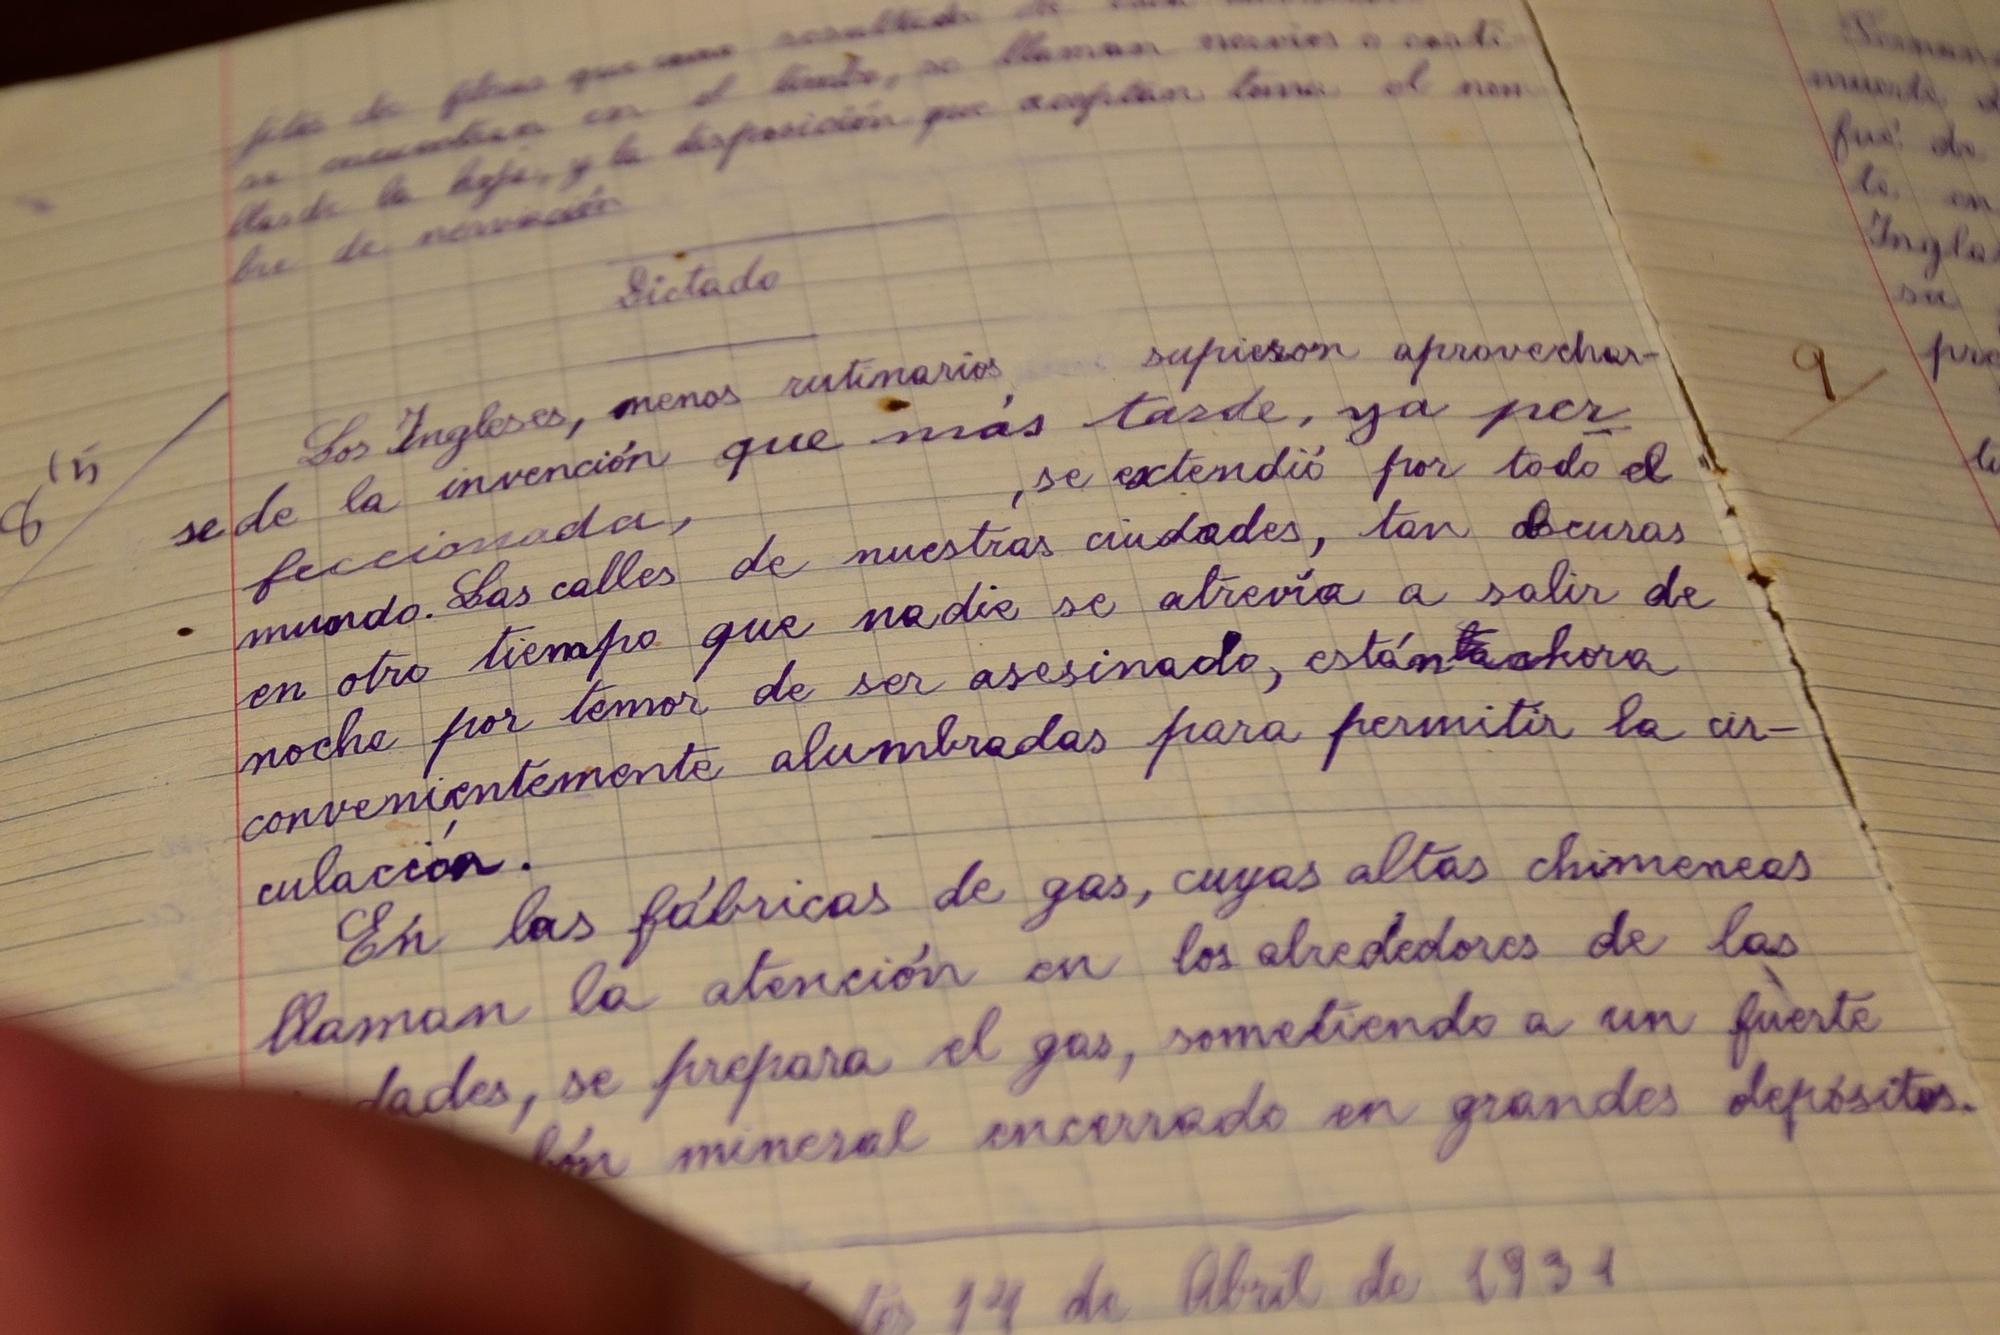 se encuentran en el limbo, se llaman nervios o costi-
llas de la hoja, y la disposición que aceptan toma el nom
bre de nerviación
Dictado
Los Ingleses, menos rutinarios supieron aprovechar-
se de la invención que más tarde, ya per
feccionada, , se extendió por todo el
mundo. Las calles de nuestras ciudades, tan obscuras
en otro tiempo que nadie se atrevía a salir de
noche por temor de ser asesinado, están ahora
convenientemente alumbradas para permitir la cir-
culación.
En las fábricas de gas, cuyas altas chimeneas
llaman la atención en los alrededores de las
dades, se prepara el gas, sometiendo a un fuerte
bón mineral encerrado en grandes depósitos.
14 de Abril de 1931
8
9
muerte
fué de